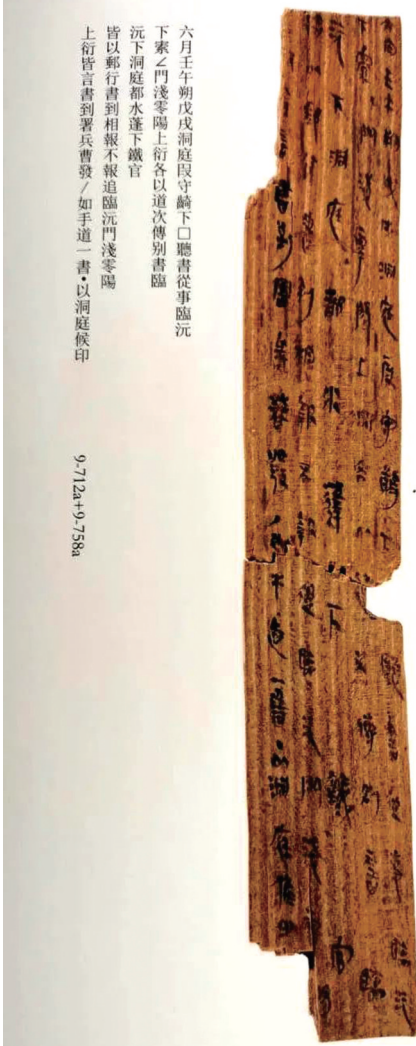 六月壬午朔戊戌洞庭叚守齮下□聽書從事臨沅
下索∠門淺零陽上衍各以道次傳别書臨
沅下洞庭都水蓬下鐵官
皆以郵行書到相報不報追臨沅門淺零陽
上衍皆言書到署兵曹發/如手道一書•以洞庭候印
9-712a+9-758a